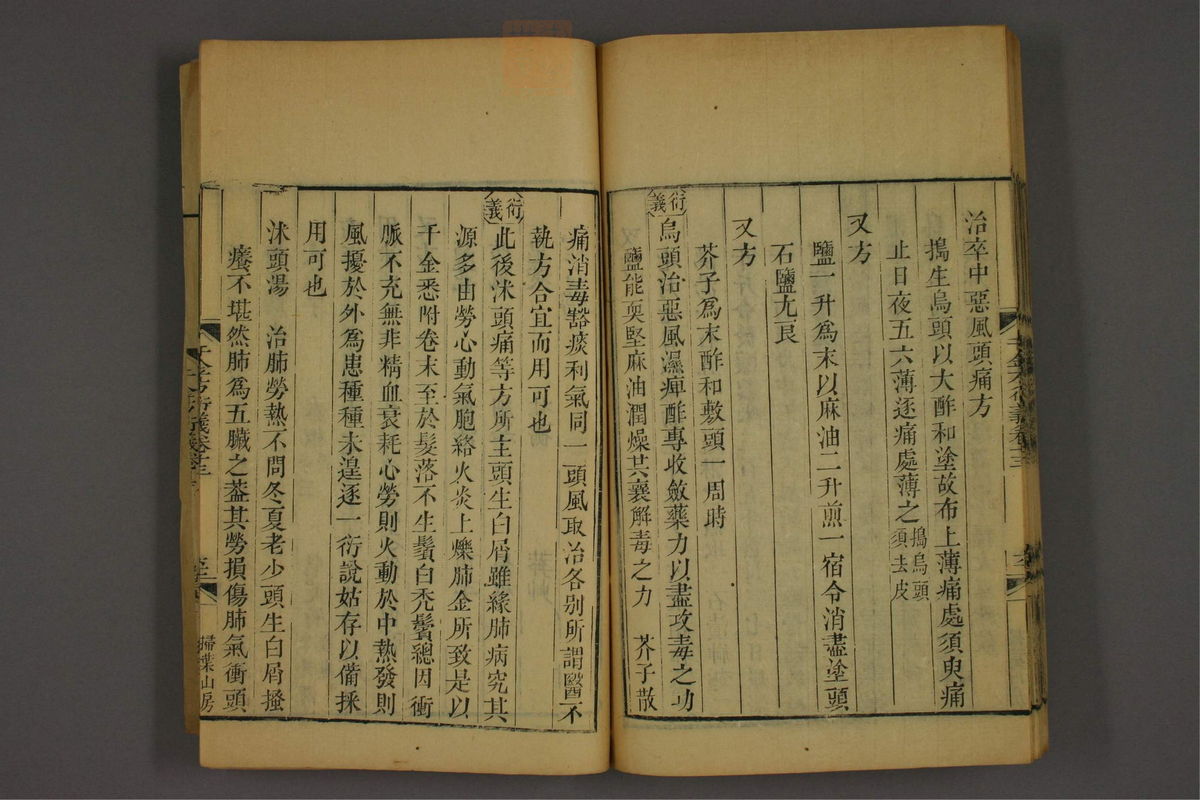 治卒中惡風頭痛方
搗生烏頭以大酢和塗故布上薄痛處須臾痛
止日夜五六薄逐痛處薄之搗烏頭
須去皮
又方
鹽一升爲末以麻油二升煎一宿令消盡塗頭
石鹽尤良
又方
芥子爲末酢和敷頭一周時
衍義
烏頭治惡風濕痺酢專收斂藥力以盡攻毒之功
鹽能耎堅麻油潤燥共襄解毒之力 芥子散
痛消毒豁痰利氣同一頭風取治各别所謂醫不
執方合宜而用可也
衍義
此後沐頭痛等方所主頭生白屑雖緣肺病究其
源多由勞心動氣胞絡火炎上爍肺金所致是以
千金悉附卷末至於髮落不生鬚白禿鬢總因衝
脈不充無非精血衰耗心勞則火動於中熱發則
風擾於外爲患種種未遑逐一衍說姑存以備採
用可也
沐頭湯 治肺勞熱不問冬夏老少頭生白屑搔
癢不堪然肺爲五臟之葢其勞損傷肺氣衝頭
千金方衍義卷十三
掃葉山房